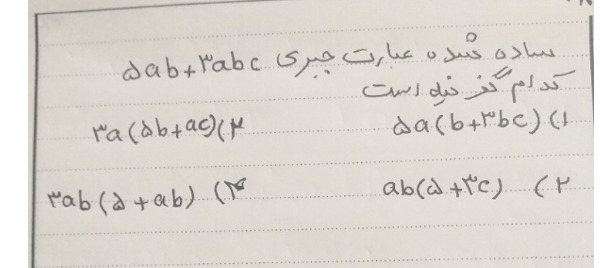 ساده شده عبارت جبری ۵ab+۳abc
کدام گزینه است
۱) ۵a(b+۳bc)
۳) ۳a(۵b+ac)
۲) ab(۵+۳c)
۴) ۳ab(۵+ab)